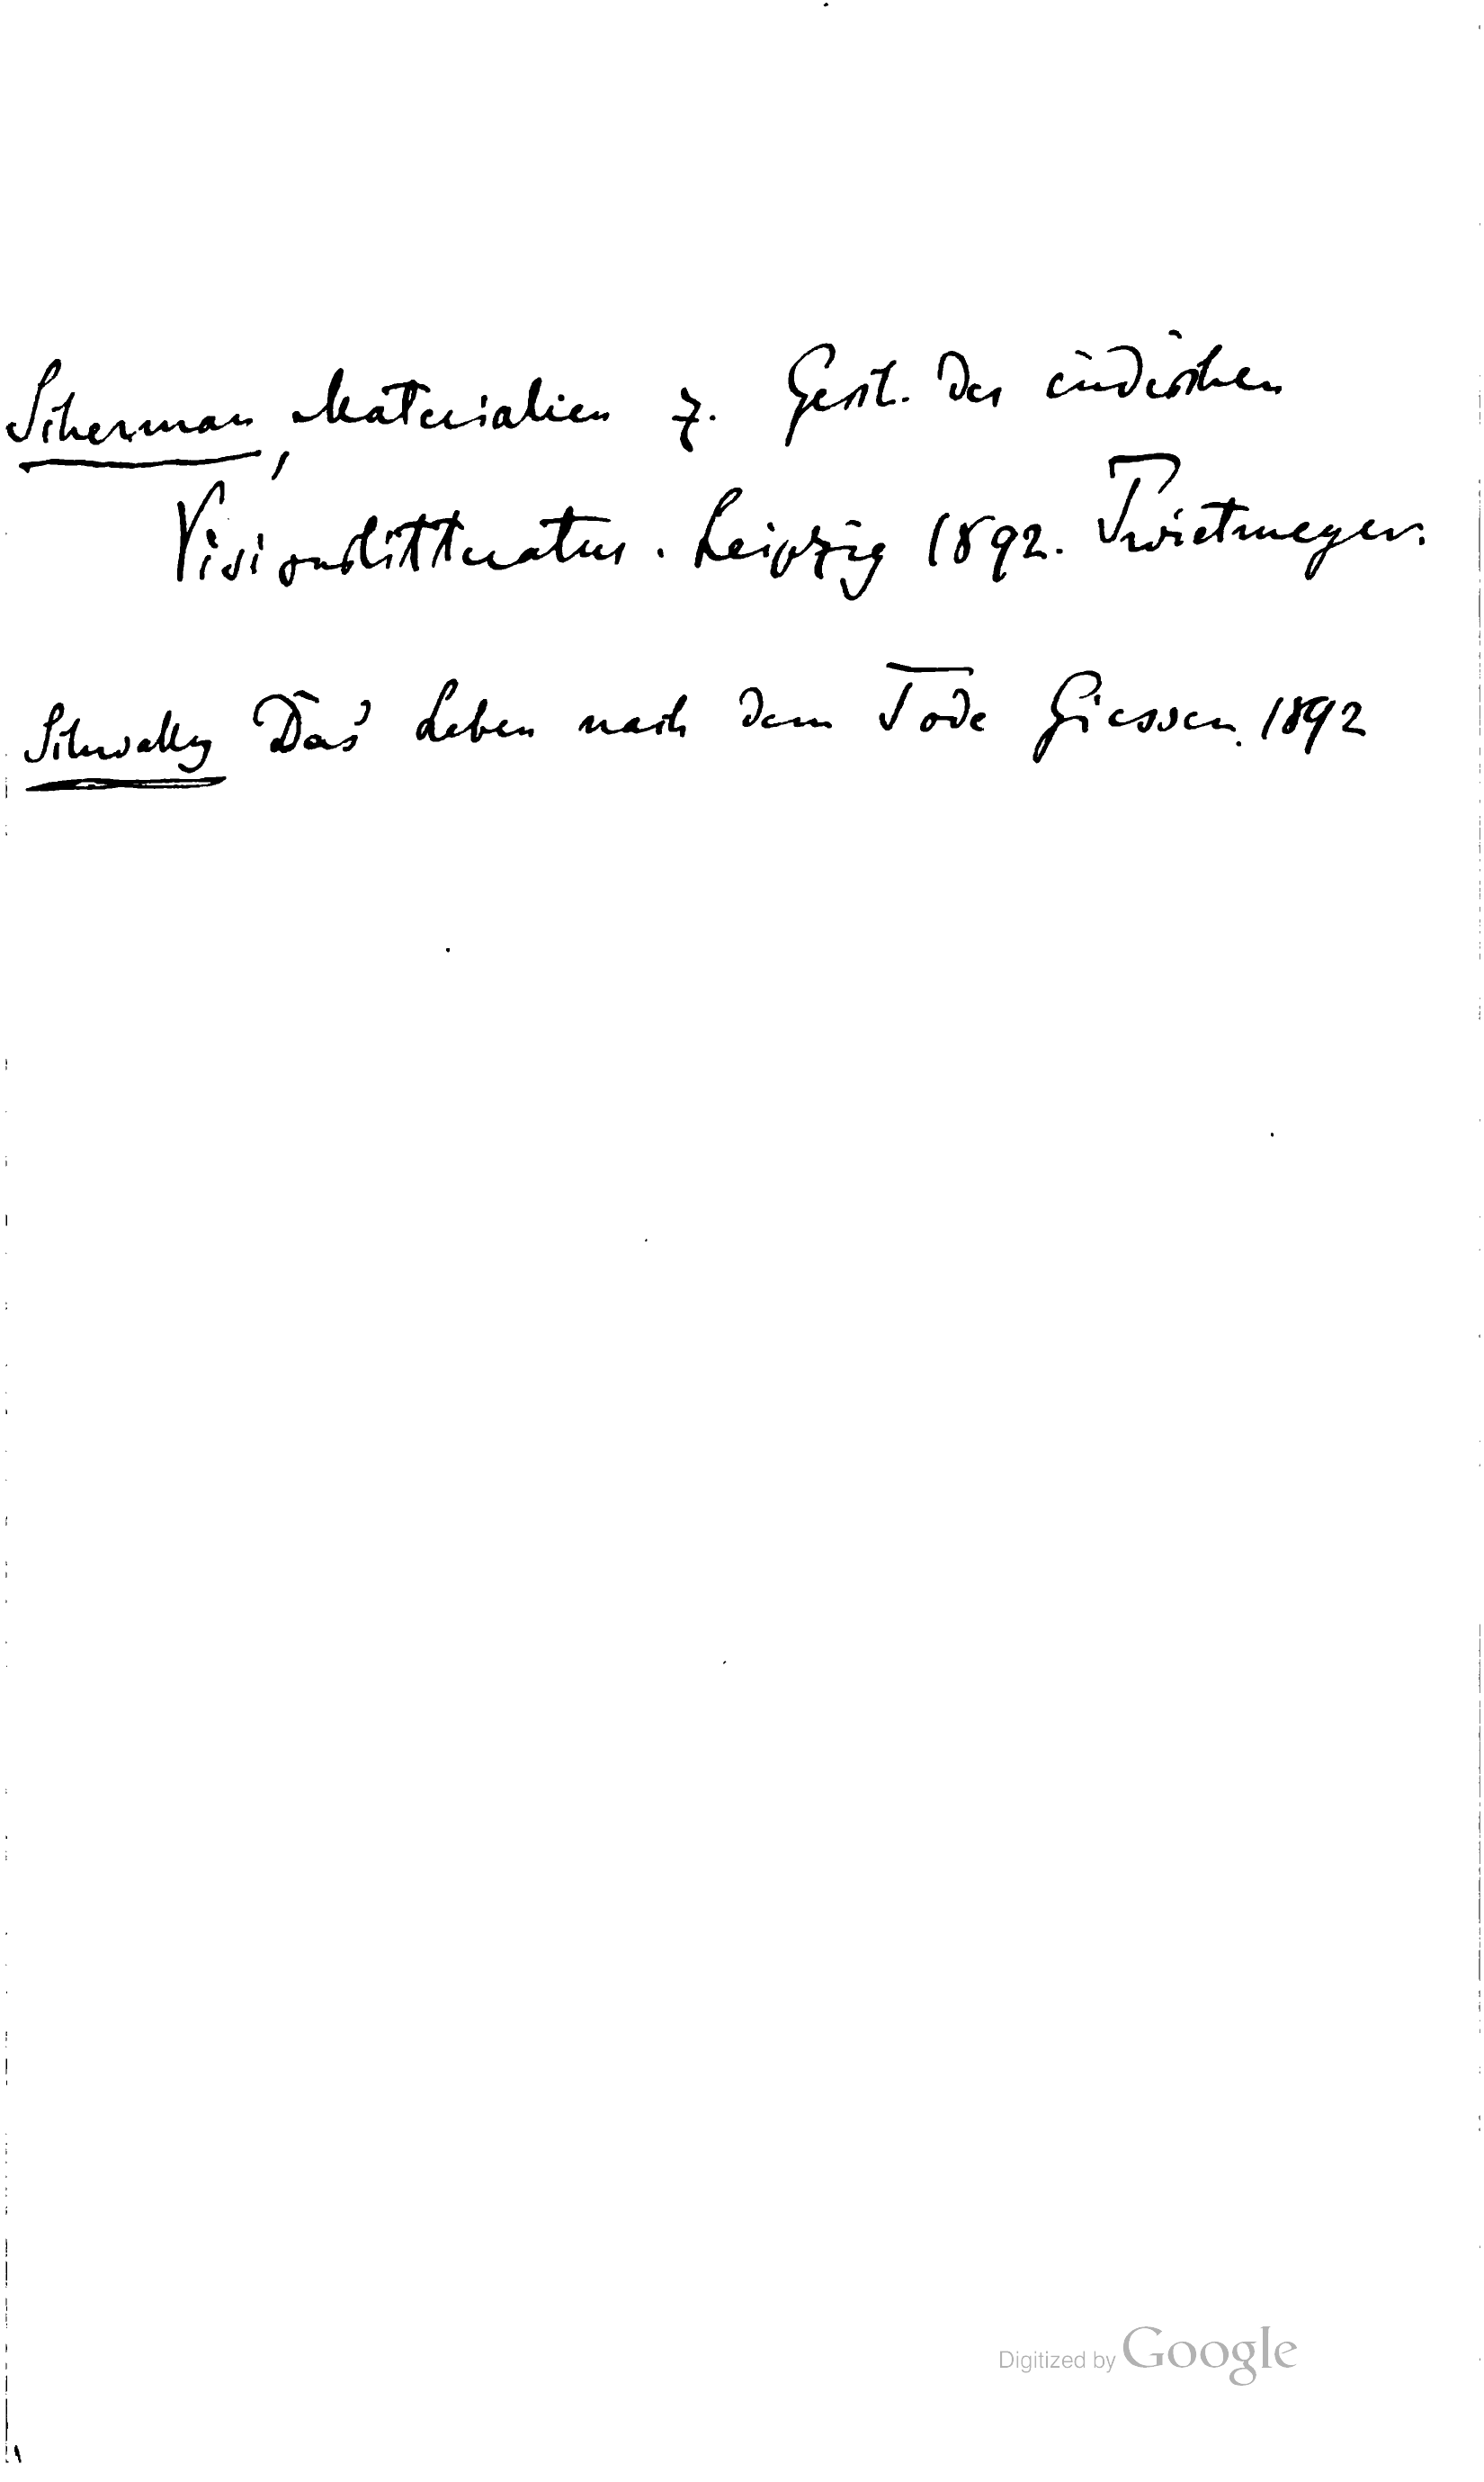 Scherman, Materialien z. Gesch. der indischen
Visionslitteratur. Leipzig 1892. Twietmeyer.
Schwally Das Leben nach dem Tode Giessen. 1892
Digitized by Google